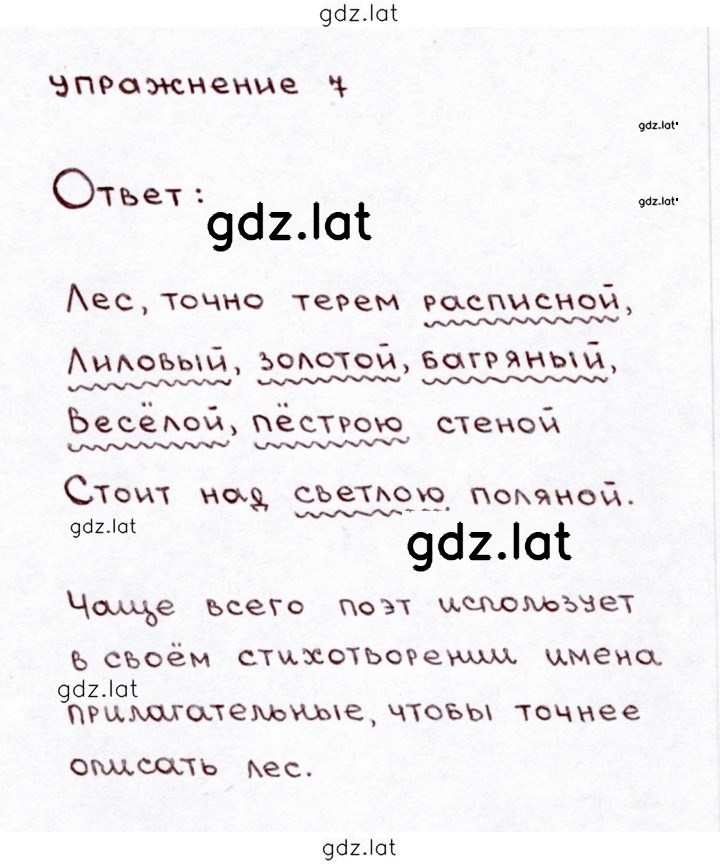 gdz.lat
упражнение 7
gdz.lat
Ответ:
gdz.lat
gdz.lat
Лес, точно терем расписной,
Лиловый, золотой, багряный,
Весёлой, пёстрою стеной
Стоит над светлою поляной.
gdz.lat
gdz.lat
Чаще всего поэт использует
в своём стихотворении имена
gdz.lat
прилагательные, чтобы точнее
описать лес.
gdz.lat